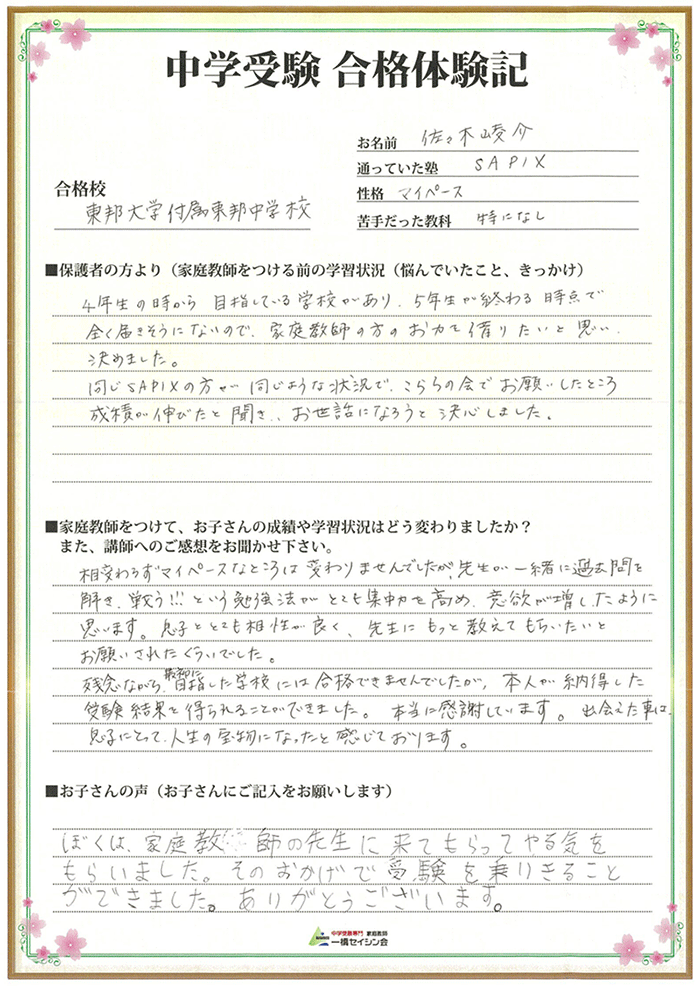 中学受験 合格体験記
お名前 佐々木崚介
通っていた塾 SAPIX
性格 マイペース
苦手だった教科 特になし
合格校
東邦大学付属東邦中学校
■保護者の方より（家庭教師をつける前の学習状況（悩んでいたこと、きっかけ）
4年生の時から 目指している学校があり、5年生が終わる時点で
全く届きそうにないので、家庭教師の方のお力を借りたいと思い、
決めました。
同じSAPIXの方が同じような状況で、こちらの会でお願いしたところ
成績が伸びたと聞き、お世話になろうと決心しました。
■家庭教師をつけて、お子さんの成績や学習状況はどう変わりましたか？
また、講師へのご感想をお聞かせ下さい。
相変わらずマイペースなところは変わりませんでしたが、先生が一緒に過去問を
解き、戦う!!! という勉強法がとても集中力を高め、意欲が増したように
思います。息子ととても相性が良く、先生にもっと教えてもらいたいと
お願いされたくらいでした。
残念ながら、最初に目指した学校には合格できませんでしたが、本人が納得した
受験結果を得られることができました。本当に感謝しています。出会えた事は、
息子にとって、人生の宝物になったと感じております。
■お子さんの声（お子さんにご記入をお願いします）
ぼくは、家庭教師の先生に来てもらってやる気を
もらいました。そのおかげで受験を乗りきること
ができました。ありがとうございます。
中学受験専門 家庭教師
一橋セイシン会